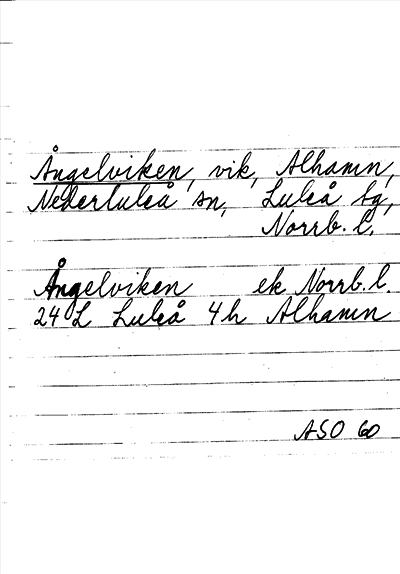 Ångelviken, vik, Alhamn,
Nederluleå sn, Luleå tg,
Norrb. l.
Ångelviken ek Norrb. l.
24 L Luleå 4h Alhamn
ASO 60